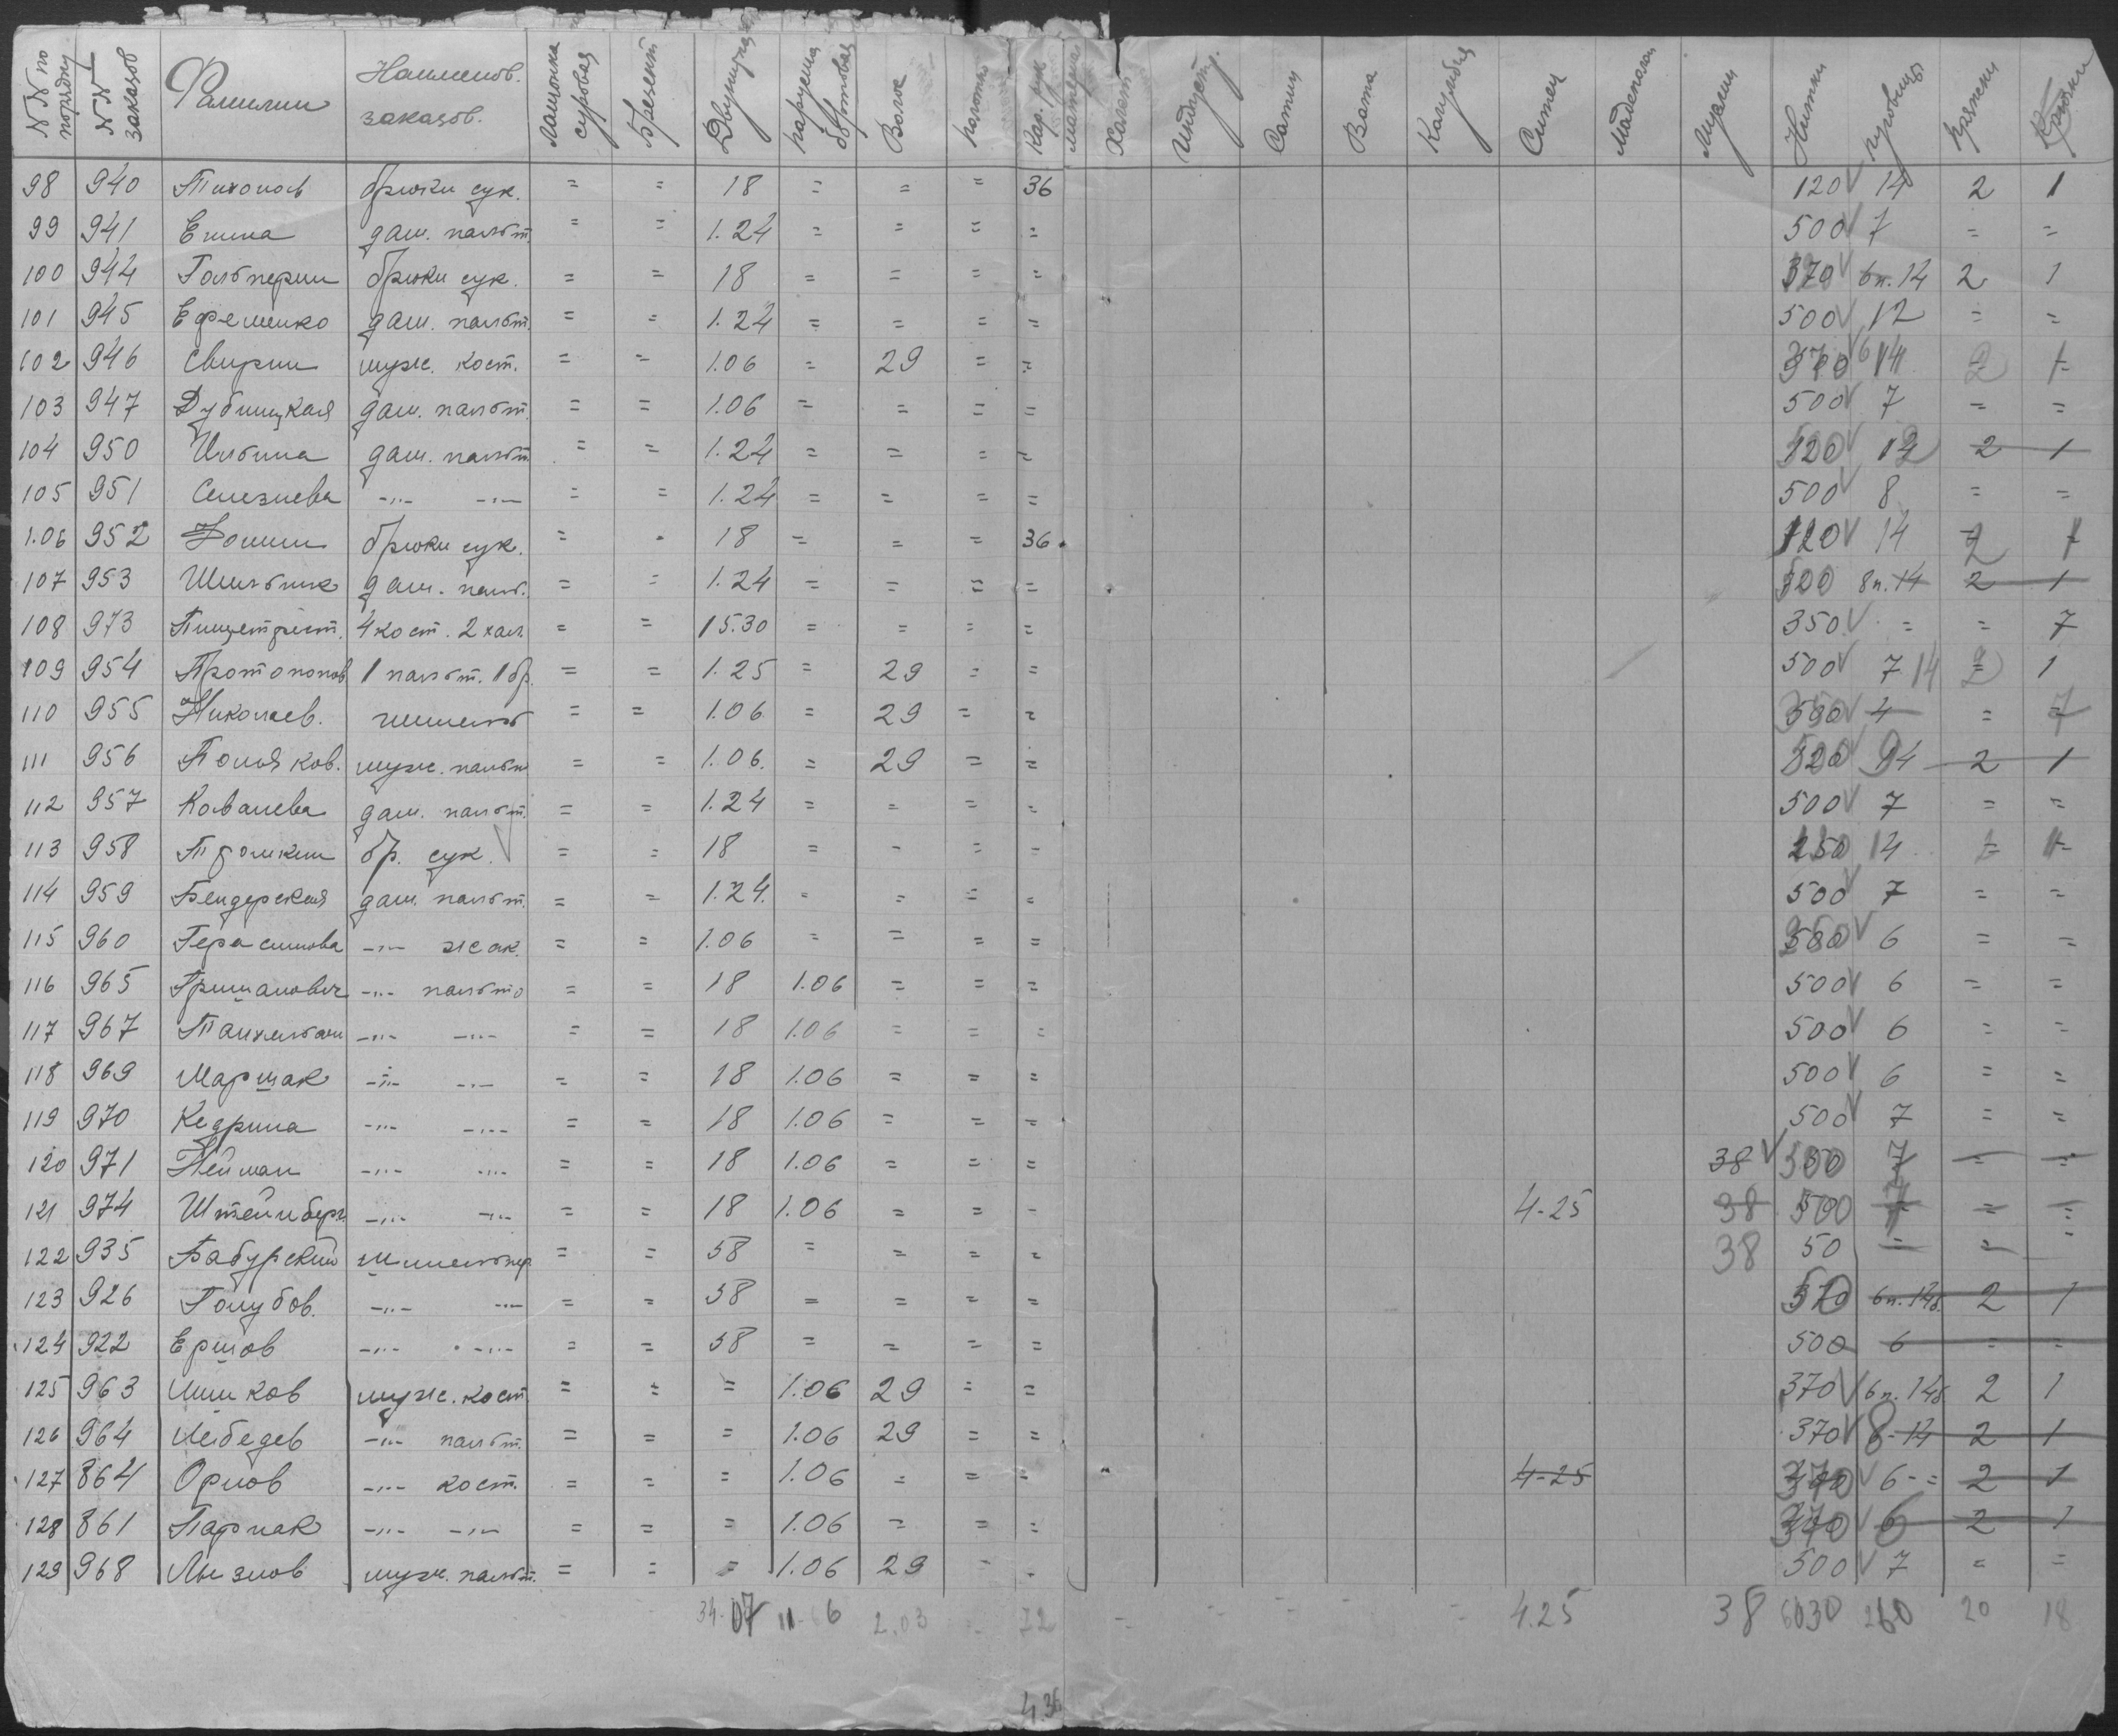 №№ по порядку | №№ заказов | Фамилии | Наименов. заказов. | суровая | Брезент | Двунитка | парусина бортовая | Волос | полотно | Кар. рук материал | Халат | Сатин | Вата | Ситец | Мадеполам | Муслин | Нитки | пуговицы | пряжки | Крючки
98 940 Тихонов брюки сук. = = 18 = = = 36 120 √ 14 2 1
99 941 Енина дам. пальт. = = 1.24 = = = = 500 √ 7 = =
100 944 Гальперин брюки сук. = = 18 = = = = 370 √ 6п. 14 2 1
101 945 Ефременко дам. пальт. = = 1.24 = = = = 500 √ 12 = =
102 946 Свирин муж. кост. = = 1.06 = 29 = = 370 √ 6 14 2 1
103 947 Дубницкая дам. пальт. = = 1.06 = = = = 500 √ 7 = =
104 950 Ильина дам. пальт. = = 1.24 = = = = 120 √ 12 2 1
105 951 Селезнева -„- -„- = = 1.24 = = = = 500 √ 8 = =
1.06 952 Фонин брюки сук. = = 18 = = = 36. 120 √ 14 2 1
107 953 Шильник дам. пальт. = = 1.24 = = = = 520 8п. 14 2 1
108 973 Пищетрест. 4 кост. 2 хал. = = 15.30 = = = = 350 √ = = 7
109 954 Протопопов 1 пальт. 1 бр. = = 1.25 = 29 = = 500 √ 7 14 2 1
110 955 Николаев. шинель = = 1.06 = 29 = = 350 √ 4 = 7
111 956 Поляков. муж. пальт = = 1.06. = 29 = = 520 √ 9 14 2 1
112 957 Ковалева дам. пальт. = = 1.24 = = = = 500 √ 7 = =
113 958 бр. сук. √ = = 18 = = = = 250 14
114 959 Бендерская дам. пальт. = = 1.24. = = = = 500 √ 7 = =
115 960 Герасимова -„- жак. = = 1.06 = = = = √ 6 = =
116 965 Гришанович -„- пальто = = 18 1.06 = = = 500 √ 6 = =
117 967 -„- -„- = = 18 1.06 = = = 500 √ 6 = =
118 969 Маршак -„- -„- = = 18 1.06 = = = 500 √ 6 = =
119 970 Кедрина -„- -„- = = 18 1.06 = = = 500 √ 7 = =
120 971 Нейман -„- -„- = = 18 1.06 = = = 38 √ 500 7 = =
121 974 Штейнберг -„- -„- = = 18 1.06 = = = 4-25 38 500 7 = =
122 935 Бабурский = = 58 = = = = 38 50 = = =
123 926 Голубов. -„- -„- = = 58 = = = = 370 6п. 14б. 2 1
124 922 Ершов -„- -„- = = 58 = = = = 500 6 = =
125 963 Шишков муж. кост. = = = 1.06 29 = = 370 √ 6п. 14б 2 1
126 964 Лебедев -„- пальт. = = = 1.06 29 = = 370 √ 8-14 2 1
127 864 Орлов -„- кост. = = = 1.06 = = = 4-25 370 √ 6-= 2 1
128 861 Парнак -„- -„- = = = 1.06 = = = 370 √ 6 2 1
129 968 Лызлов муж. пальт. = = = 1.06 29 = = 500 √ 7 = =
34-07 11-66 2.03 - 72 - - - - - 4.25 38 6030 260 20 18
4.36